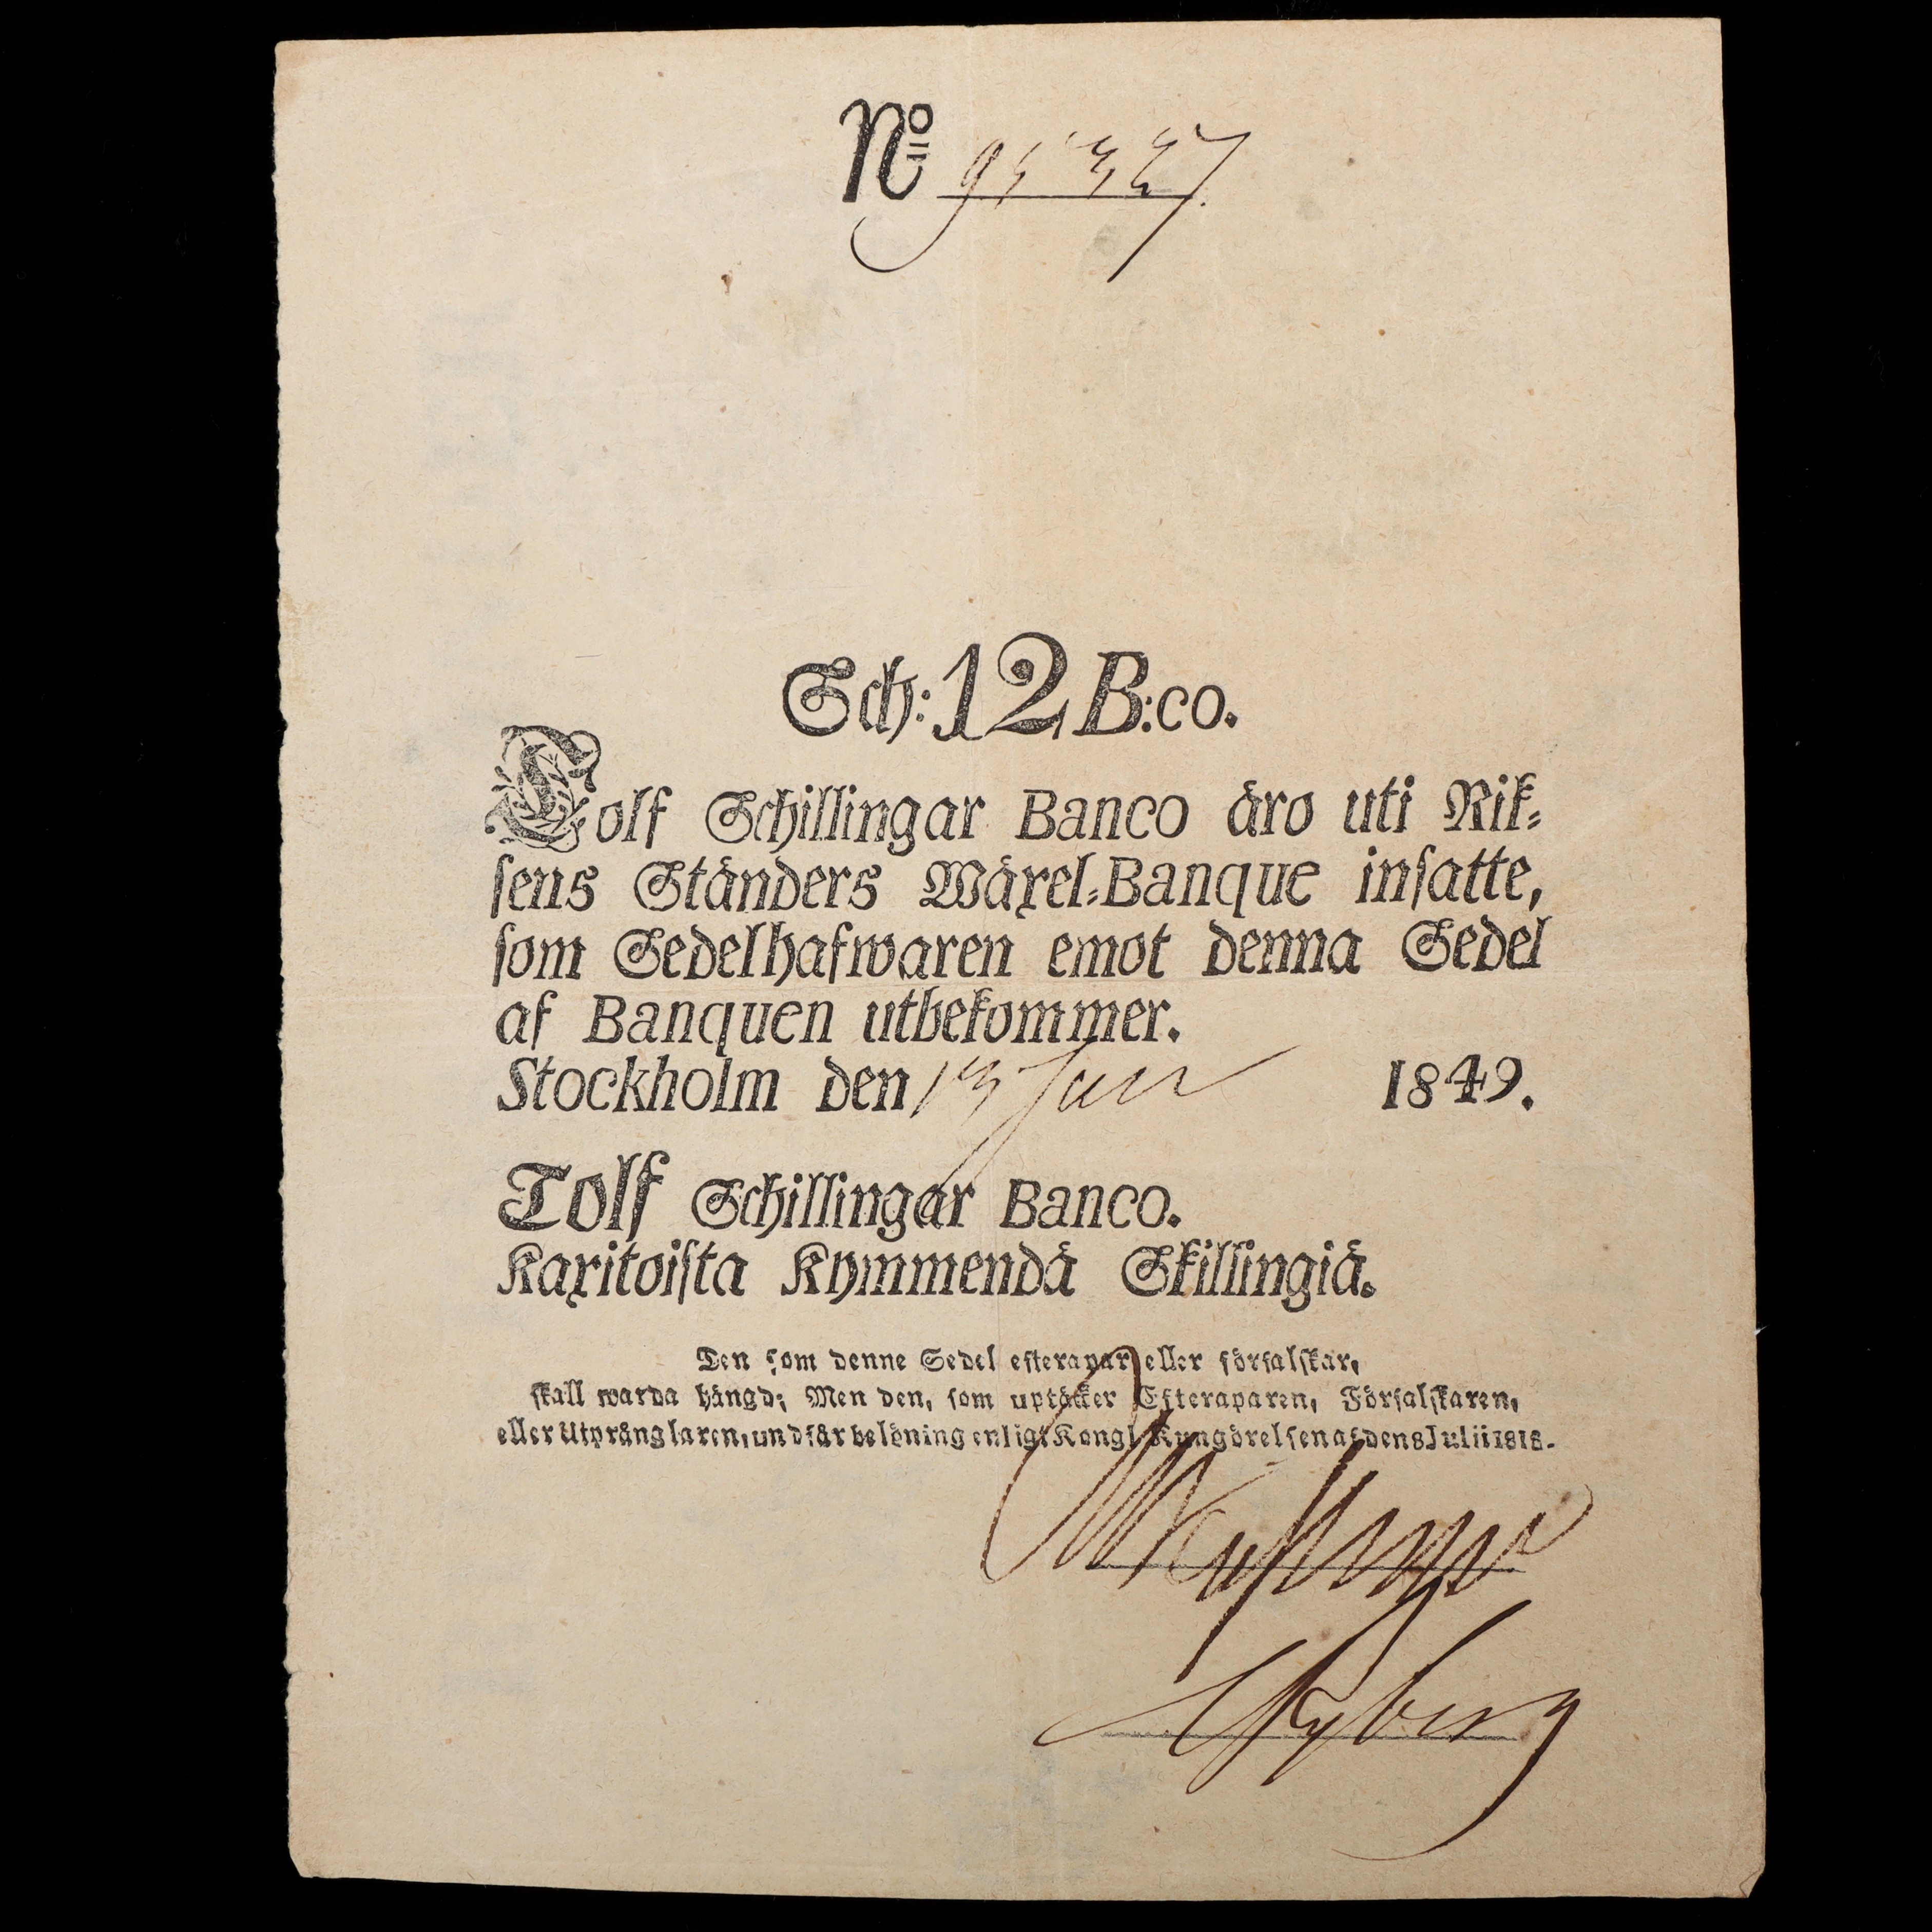 No
Sch: 12 B:co.
Tolf Schillingar Banco äro uti Rik=
sens Ständers Wäxel=Banque insatte,
som Sedelhafwaren emot denna Sedel
af Banquen utbekommer.
Stockholm den 13 Jan 1849.
Tolf Schillingar Banco.
Kaxitoista Kymmendä Skillingiä.
Den som denne Sedel efterapar eller förfalskar,
skall warda hängd; Men den, som uptäcker Efteraparen, Förfalskaren,
eller Utprånglaren, undfår belöning enligt Kongl. Kungörelsen af den 8 Julii 1818.